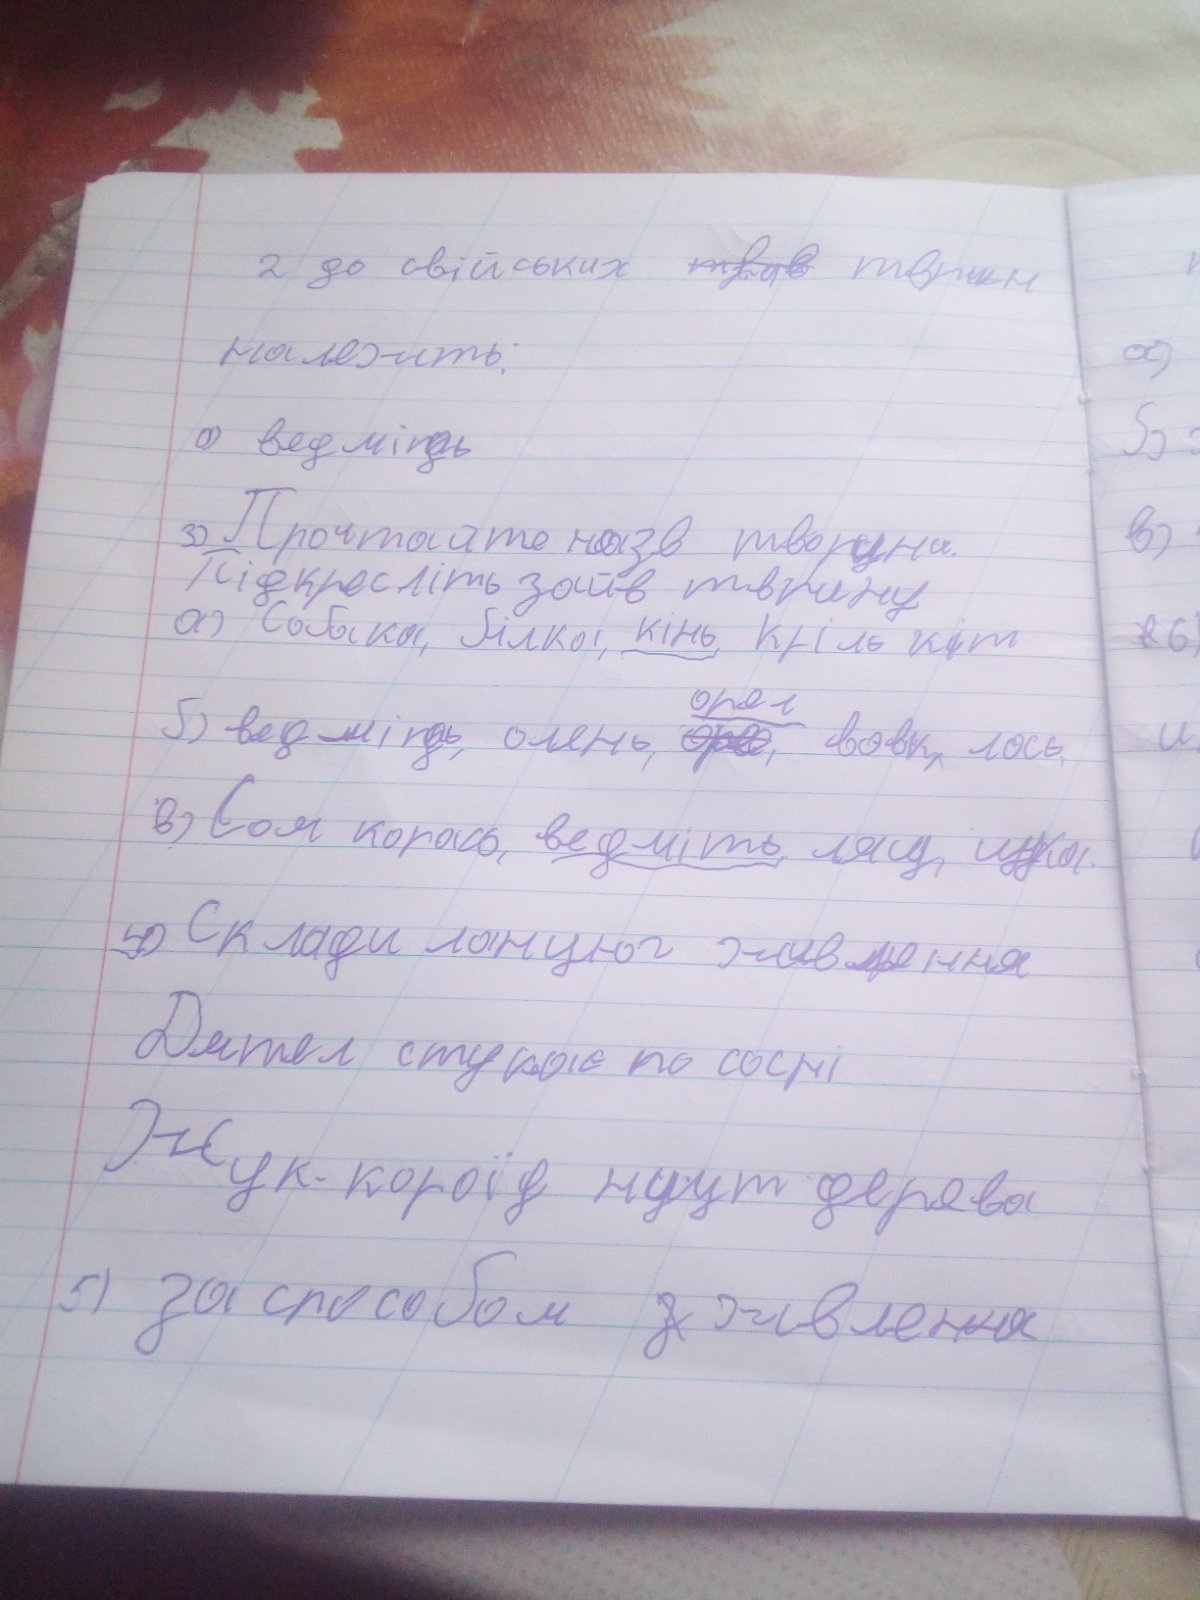 2 до свійських твари
належить:
а) ведмідь
3) Прочтайте назв творуни.
Підкресліть зайв твгину
а) Собака, білка, кінь, кріль кіт
орел
б) ведмідь, олень, вовк, лось.
в) Сом корась, ведміть, лящ, щука.
4) Склади ланцюг живлення
Дятел стукає по сосні
Жук-короїд дерева
5) за способом живлення
а)
б)
в)